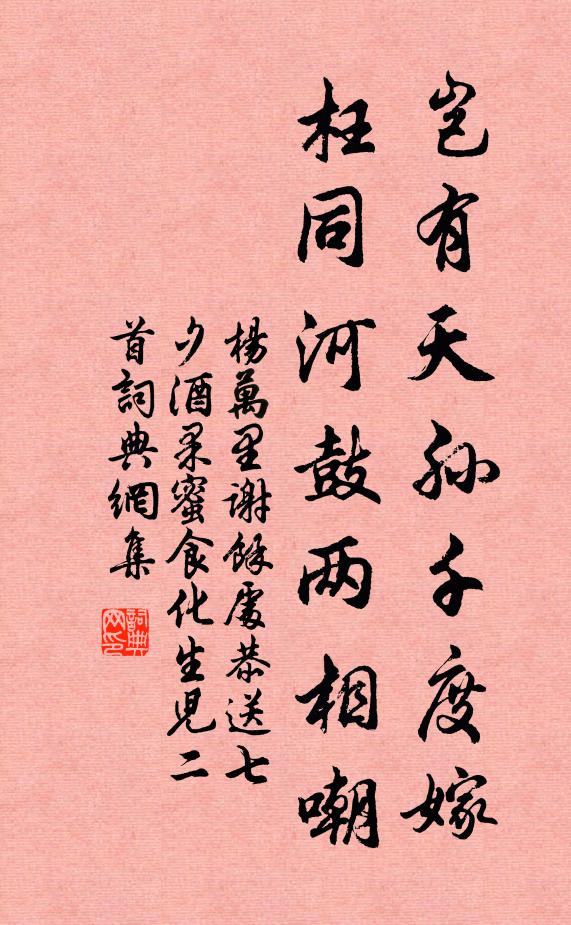 岂有天孙千度嫁
枉同河鼓两相嘲
楊萬里謝餘處恭送七
夕酒果蜜食化生児二
首詞典網集
詞典
网印